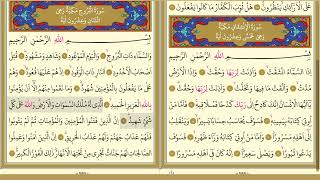 عَلَى الْأَرَائِكِ يَنْظُرُونَ هَلْ ثُوِّبَ الْكُفَّارُ مَا كَانُوا يَفْعَلُونَ
سُورَةُ الْاِنْشِقَاقِ مَكِّيَّةٌ
وَهِيَ خَمْسٌ وَعِشْرُونَ آيَةً
بِسْمِ اللهِ الرَّحْمٰنِ الرَّحِيمِ
إِذَا السَّمَاءُ انْشَقَّتْ وَأَذِنَتْ لِرَبِّهَا وَحُقَّتْ وَإِذَا الْأَرْضُ
مُدَّتْ وَأَلْقَتْ مَا فِيهَا وَتَخَلَّتْ وَأَذِنَتْ لِرَبِّهَا وَحُقَّتْ
يَا أَيُّهَا الْإِنْسَانُ إِنَّكَ كَادِحٌ إِلَى رَبِّكَ كَدْحًا فَمُلَاقِيهِ فَأَمَّا مَنْ أُوتِيَ
كِتَابَهُ بِيَمِينِهِ فَسَوْفَ يُحَاسَبُ حِسَابًا يَسِيرًا وَيَنْقَلِبُ
إِلَى أَهْلِهِ مَسْرُورًا وَأَمَّا مَنْ أُوتِيَ كِتَابَهُ وَرَاءَ ظَهْرِهِ فَسَوْفَ
يَدْعُو ثُبُورًا وَيَصْلَى سَعِيرًا إِنَّهُ كَانَ فِي أَهْلِهِ مَسْرُورًا
سُورَةُ الْبُرُوجِ مَكِّيَّةٌ وَهِيَ
اثْنَتَانِ وَعِشْرُونَ آيَةً
بِسْمِ اللهِ الرَّحْمٰنِ الرَّحِيمِ
وَالسَّمَاءِ ذَاتِ الْبُرُوجِ وَالْيَوْمِ الْمَوْعُودِ وَشَاهِدٍ وَمَشْهُودٍ قُتِلَ
أَصْحَابُ الْأُخْدُودِ النَّارِ ذَاتِ الْوَقُودِ إِذْ هُمْ عَلَيْهَا قُعُودٌ وَهُمْ
عَلَى مَا يَفْعَلُونَ بِالْمُؤْمِنِينَ شُهُودٌ وَمَا نَقَمُوا مِنْهُمْ إِلَّا أَنْ يُؤْمِنُوا
بِاللهِ الْعَزِيزِ الْحَمِيدِ الَّذِي لَهُ مُلْكُ السَّمٰوَاتِ وَالْأَرْضِ وَاللهُ عَلَى كُلِّ
شَيْءٍ شَهِيدٌ إِنَّ الَّذِينَ فَتَنُوا الْمُؤْمِنِينَ وَالْمُؤْمِنَاتِ ثُمَّ لَمْ يَتُوبُوا
فَلَهُمْ عَذَابُ جَهَنَّمَ وَلَهُمْ عَذَابُ الْحَرِيقِ إِنَّ الَّذِينَ آمَنُوا وَعَمِلُوا
الصَّالِحَاتِ لَهُمْ جَنَّاتٌ تَجْرِي مِنْ تَحْتِهَا الْأَنْهَارُ ذٰلِكَ الْفَوْزُ الْكَبِيرُ